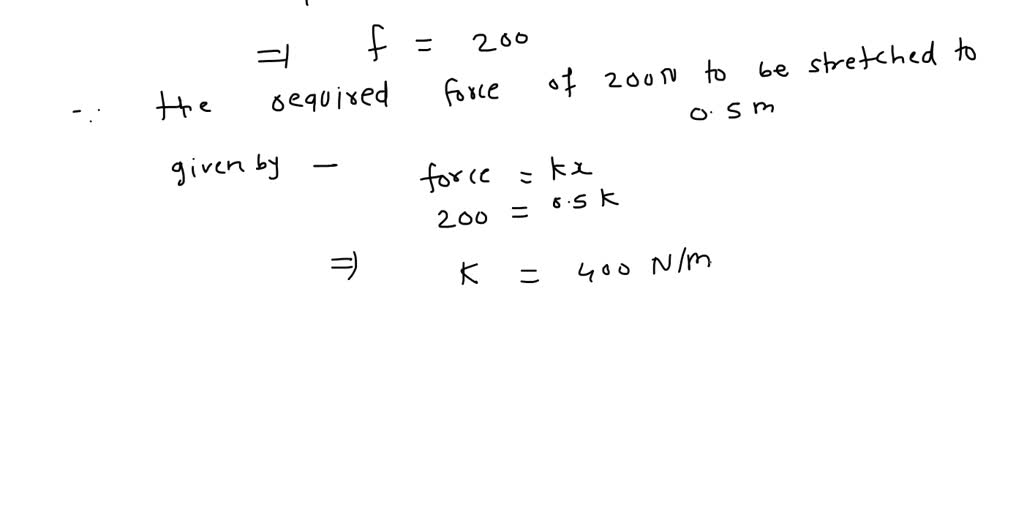 ⇒ f = 200
∵ the required force of 200N to be stretched to
0.5 m
given by — force = kx
200 = 0.5 K
⇒ K = 400 N/m